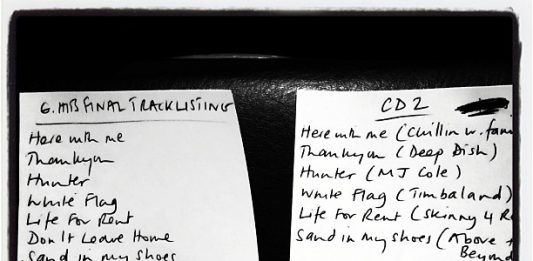 G. HITS FINAL TRACKLISTING
Here with me
Thankyou
Hunter
White Flag
Life For Rent
Don't Leave Home
Sand in my shoes
CD 2
Here with me (Chillin w. fam
Thankyou (Deep Dish)
Hunter (MJ Cole)
White Flag (Timbaland)
Life For Rent (Skinny 4 R
Sand in my shoes (Above +
Beyond